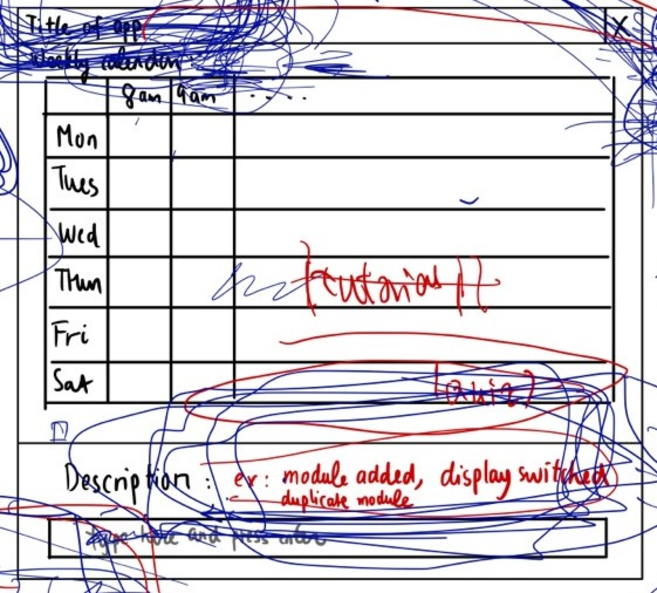 Title of app
X
Weekly calendar:
8am 9am ....
Mon
Tues
Wed
Thur
[tutorial 1]
Fri
Sat
[quiz]
Description : ex: module added, display switched
duplicate module
type here and press enter